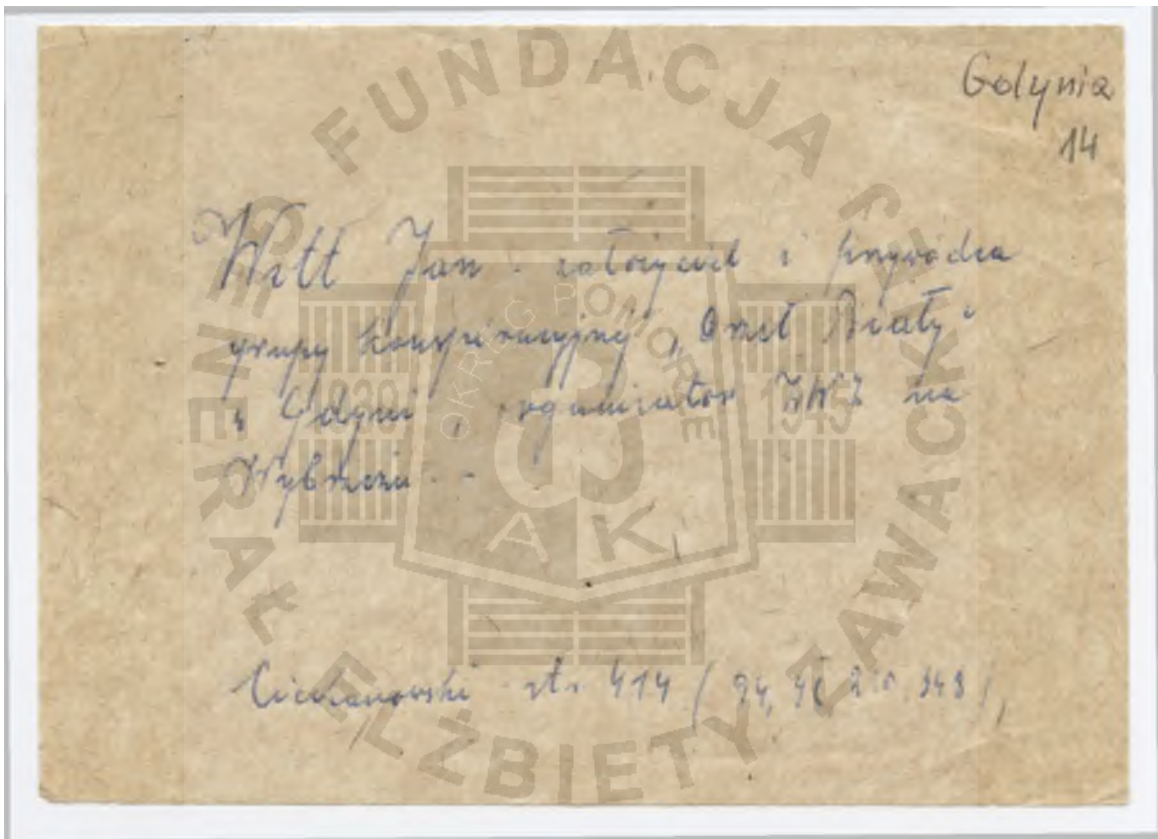 Gdynia
14
Witt Jan - założyciel i przywódca
grupy konspiracyjnej "Orzeł Biały"
w Gdyni, organizator ZWZ na
Wybrzeżu. -
Ciechanowski str. 414 (94,
FUNDACJA GENERAŁ ELŻBIETY ZAWACKIEJ
OKRĘG POMORZE
1939 1945
AK